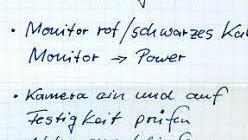 • Monitor rot/schwarzes Ka
Monitor → Power
• Kamera ein und auf
Festigkeit prüfen